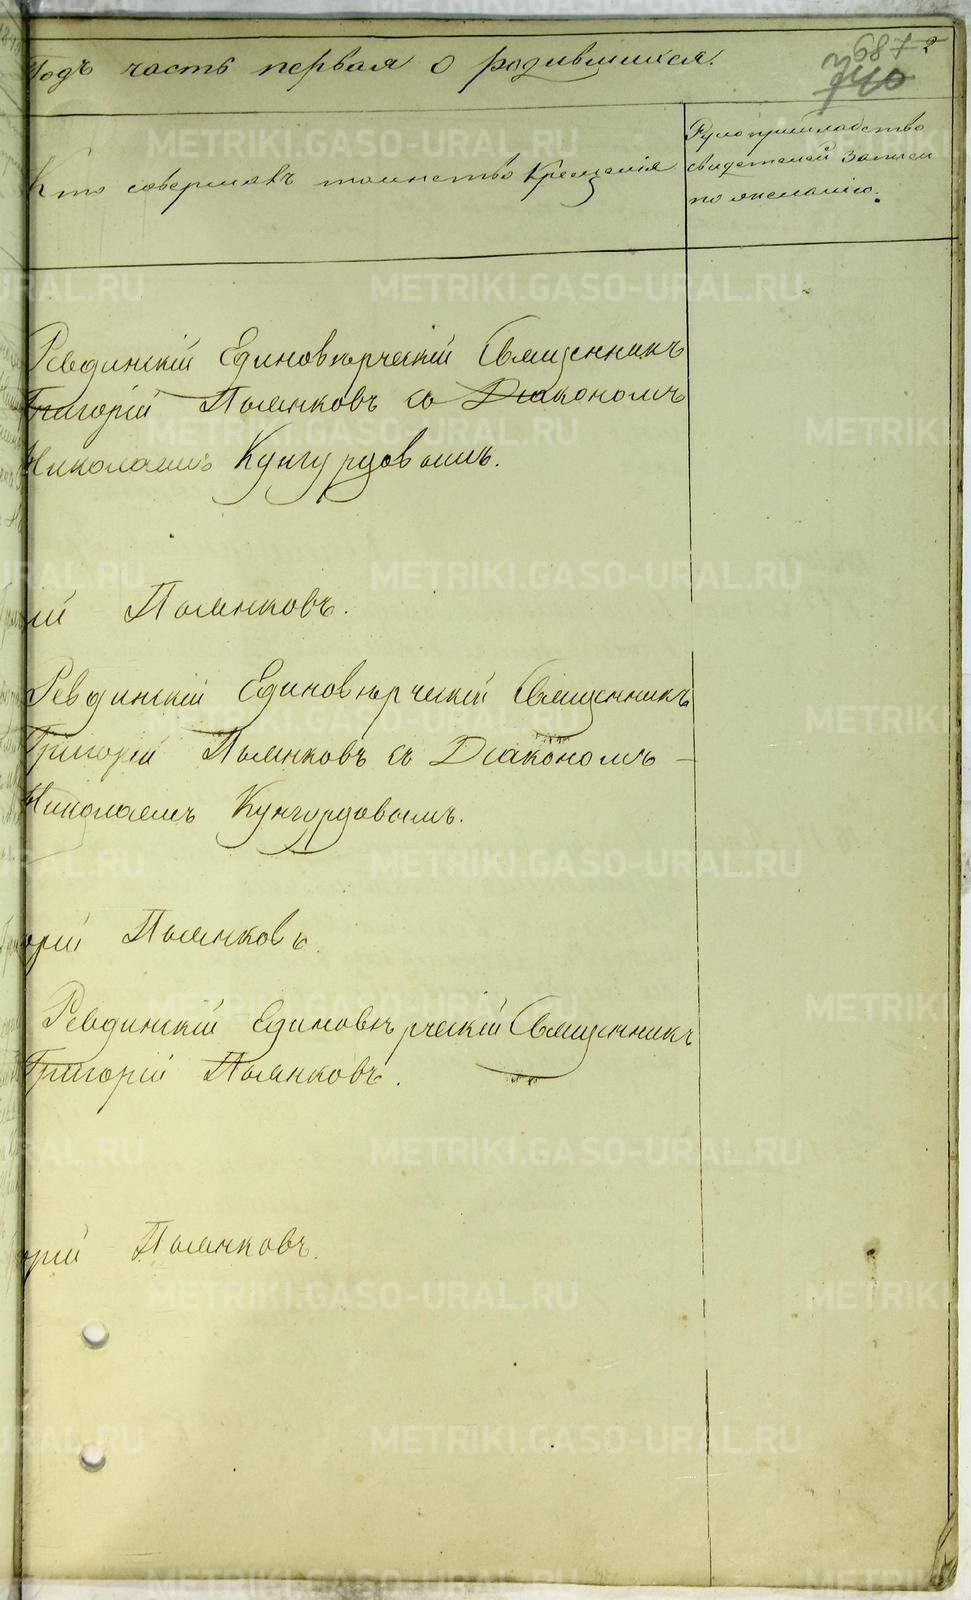 Годъ часть первая о родившихся.
687 2
740
Кто совершалъ таинство Крещенія
Рукоприкладство
свидетелей записи
по желанію.
Ревдинскій Единоверческій Священникъ
Григорій Пьянковъ съ Діакономъ
Николаемъ Кунгурцовымъ.
рій Пьянковъ.
Ревдинскій Единоверческій Священникъ
Григорій Пьянковъ съ Діакономъ
Николаемъ Кунгурцовымъ.
орій Пьянковъ.
Ревдинскій Единоверческій Священникъ
Григорій Пьянковъ.
орій Пьянковъ.
METRIKI.GASO-URAL.RU